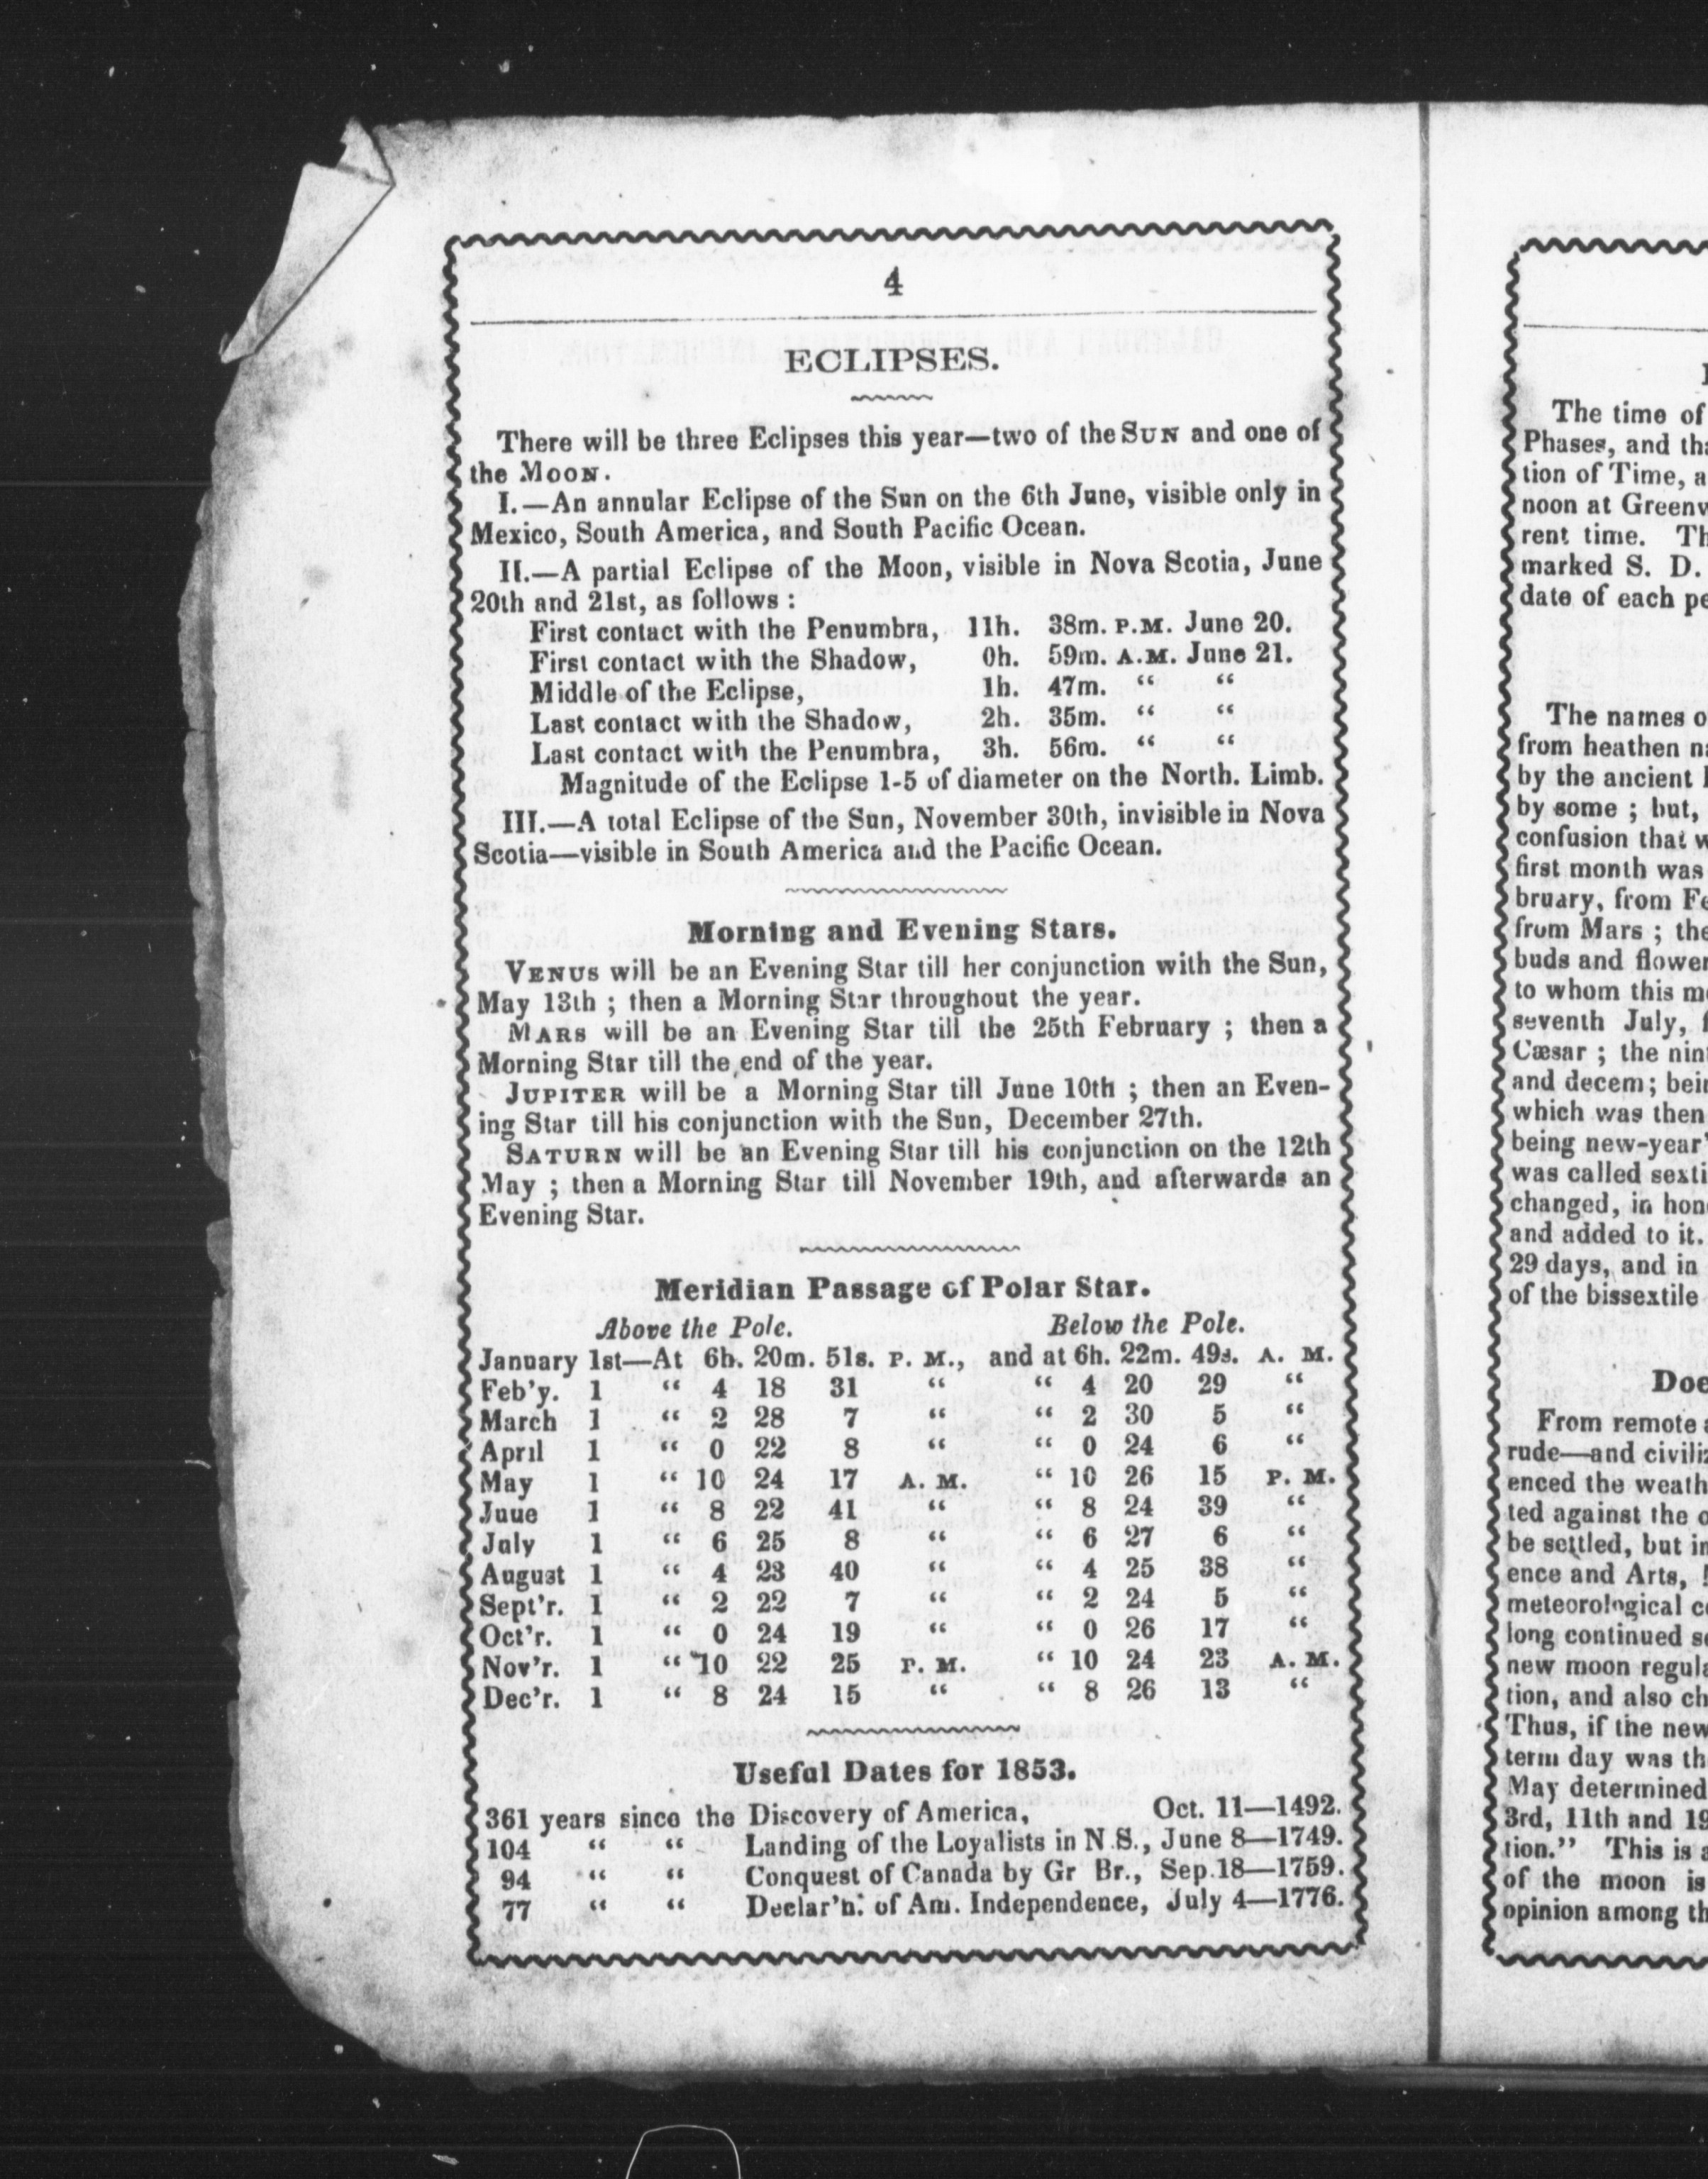 4
ECLIPSES.
There will be three Eclipses this year—two of the SUN and one of
the MOON.
I.—An annular Eclipse of the Sun on the 6th June, visible only in
Mexico, South America, and South Pacific Ocean.
II.—A partial Eclipse of the Moon, visible in Nova Scotia, June
20th and 21st, as follows :
First contact with the Penumbra, 11h. 38m. P.M. June 20.
First contact with the Shadow, 0h. 59m. A.M. June 21.
Middle of the Eclipse, 1h. 47m. “ “
Last contact with the Shadow, 2h. 35m. “ “
Last contact with the Penumbra, 3h. 56m. “ “
Magnitude of the Eclipse 1-5 of diameter on the North. Limb.
III.—A total Eclipse of the Sun, November 30th, invisible in Nova
Scotia—visible in South America and the Pacific Ocean.
Morning and Evening Stars.
VENUS will be an Evening Star till her conjunction with the Sun,
May 13th ; then a Morning Star throughout the year.
MARS will be an Evening Star till the 25th February ; then a
Morning Star till the end of the year.
JUPITER will be a Morning Star till June 10th ; then an Even-
ing Star till his conjunction with the Sun, December 27th.
SATURN will be an Evening Star till his conjunction on the 12th
May ; then a Morning Star till November 19th, and afterwards an
Evening Star.
Meridian Passage of Polar Star.
Above the Pole. Below the Pole.
January 1st—At 6h. 20m. 51s. P. M., and at 6h. 22m. 49s. A. M.
Feb'y. 1 “ 4 18 31 “ “ 4 20 29 “
March 1 “ 2 28 7 “ “ 2 30 5 “
April 1 “ 0 22 8 “ “ 0 24 6 “
May 1 “ 10 24 17 A. M. “ 10 26 15 P. M.
Juue 1 “ 8 22 41 “ “ 8 24 39 “
July 1 “ 6 25 8 “ “ 6 27 6 “
August 1 “ 4 23 40 “ “ 4 25 38 “
Sept'r. 1 “ 2 22 7 “ “ 2 24 5 “
Oct'r. 1 “ 0 24 19 “ “ 0 26 17 “
Nov'r. 1 “ 10 22 25 P. M. “ 10 24 23 A. M.
Dec'r. 1 “ 8 24 15 “ “ 8 26 13 “
Useful Dates for 1853.
361 years since the Discovery of America, Oct. 11—1492.
104 “ “ Landing of the Loyalists in N.S., June 8—1749.
94 “ “ Conquest of Canada by Gr Br., Sep.18—1759.
77 “ “ Declar'n. of Am. Independence, July 4—1776.
The time of
Phases, and
tion of Time,
noon at
rent time.
marked S. D.
date of each
The names
from heathen
by the ancient
by some ; but,
confusion that
first month was
bruary, from
from Mars ; the
buds and
to whom this
seventh July,
Cæsar ; the
and decem;
which was then
being
was called
changed, in
and added to it.
29 days, and in
of the bissextile
From remote
rude—and
enced the
ted against the
be settled, but
ence and Arts,
meteorological
long continued
new moon
tion, and also
Thus, if the
term day was
May determined
3rd, 11th and
tion.” This is
of the moon is
opinion among